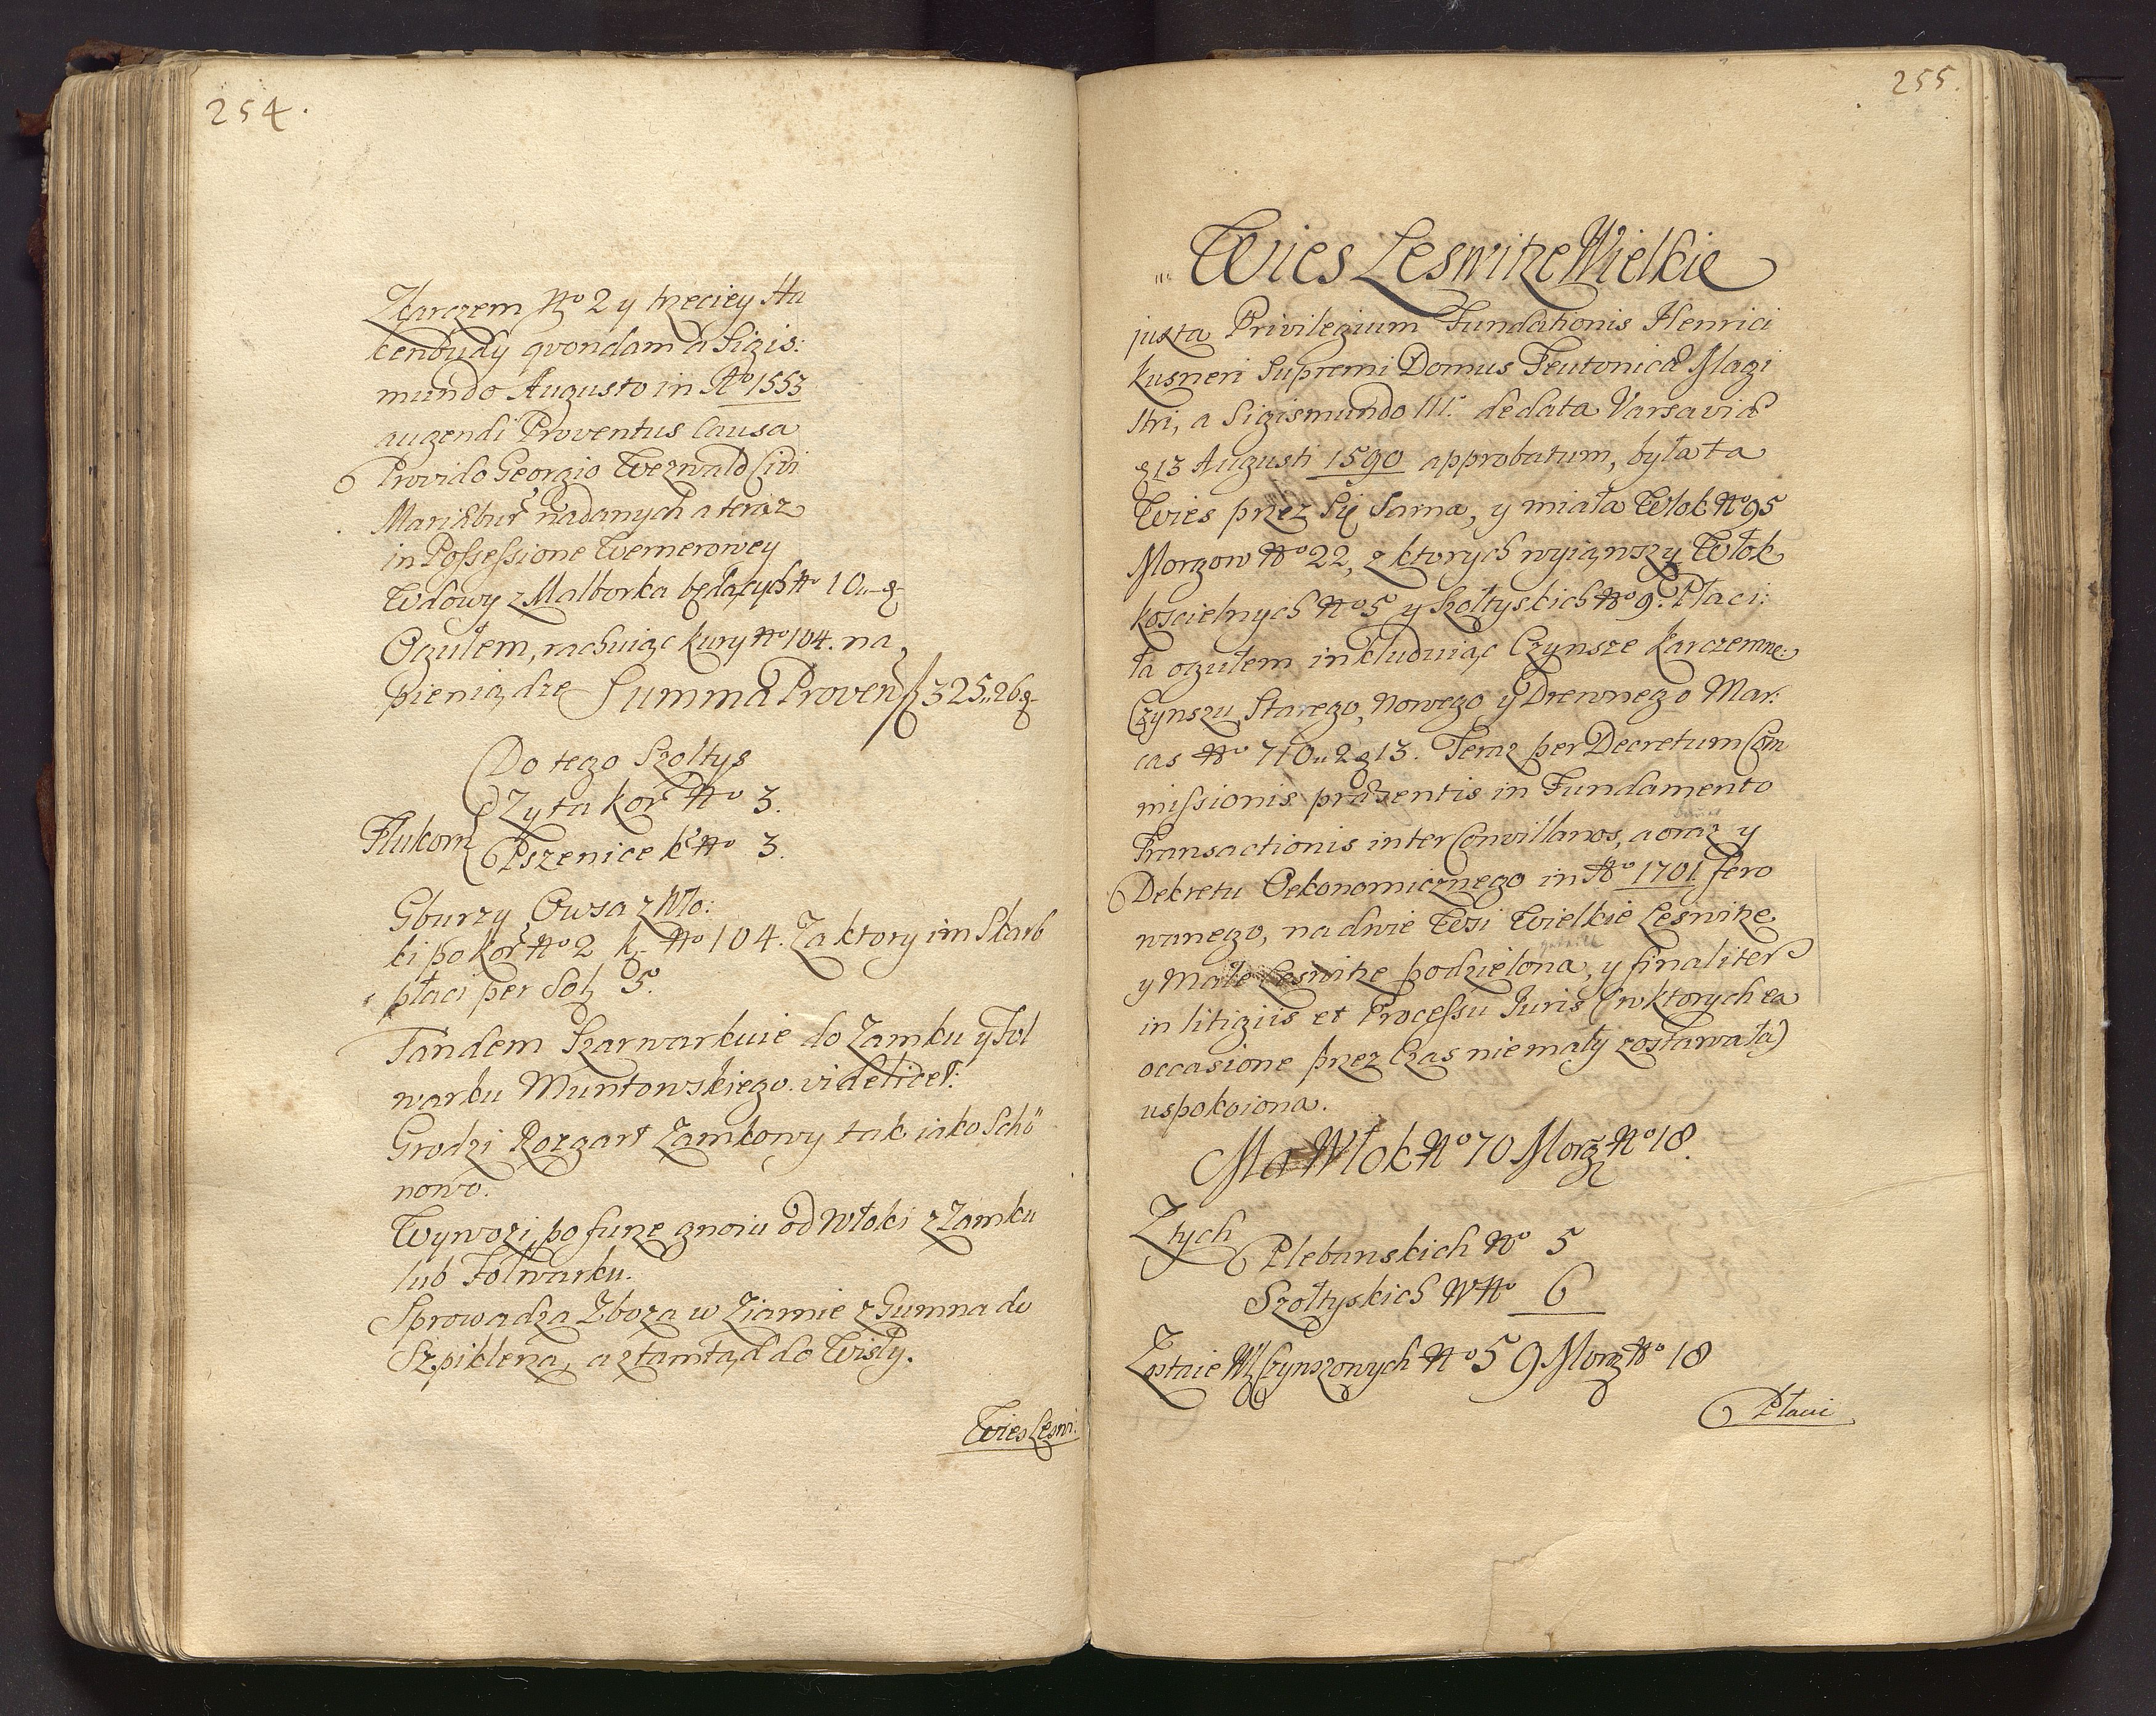 254.
Z karczem No 2 y trzeciey Ha
kenbudy qvondam a Sigis:
mundo Augusto in Ao 1553
augendi Proventus Causa
Provido Georgio Werwald Civi
Mariæbur: nadanych a teraz
in Possessione Wernerowey
Wdowy z Malborka będących No 10 „ - g
Ogułem, rachuiąc kury No 104. na
pieniądze Summa Proven f 325 „ 26 g
Do tego Szoltys
Zyta kor: No 3.
Flukorn
Pszenice k: No 3.
Gburzy Owsa z Wło:
ki po Kor: No 2 k. No 104. Za ktory im Skarb
płaci per Sol: 3.
Tandem Szarwarkuie do Zamku y Fol
warku Muntowskiego. videlicet:
Grodzi Rozgart Zamkowy tak iako Schö
nowo.
Wywozi po furze gnoiu od Włoki z Zamku
lub Folwarku.
Sprowadza Zboza w Ziarnie z Gumna do
Szpiklerza, a ztamtąd do Wisly.
Wies Leswi:
255.
Wies Leswitze Wielkie
juxta Privilegium Fundationis Henrici
Kusneri Supremi Domus Teutonicæ Magi
stri, a Sigismundo III. de data Varsaviæ
g 13 Augusti 1590 approbatum, była ta
Wies przez Się Sama, y miała Włok No 95
Morgow No 22, z ktorych wyiąwszy Włok
koscielnych No 5 y Szołtyskich No 9. Płaci:
ła ogułem inkluduiąc Czynsze karczemne
Czynszu Starego, Nowego y Drewnego Mar:
cas No 710 „ 2 g 13. Teraz per Decretum Com
missionis præsentis in Fundamento
Transactionis inter Convillanos, a oraz y
Dekretu Oekonomicznego in Ao 1701 fero
wanego, na dwie Wsi Wielkie Leswitze
y Małe Leswitze podzielona, y finaliter
in litigiis et Processu Iuris (w ktorych ea
occasione przez Czas niemały zostawała)
uspokoiona.
Ma Włok No 70 Morg No 18.
Z tych
Plebanskich No 5
Szołtyskich W No 6
Zostaie Wł Czynszowych No 59 Morg No 18
Płaci